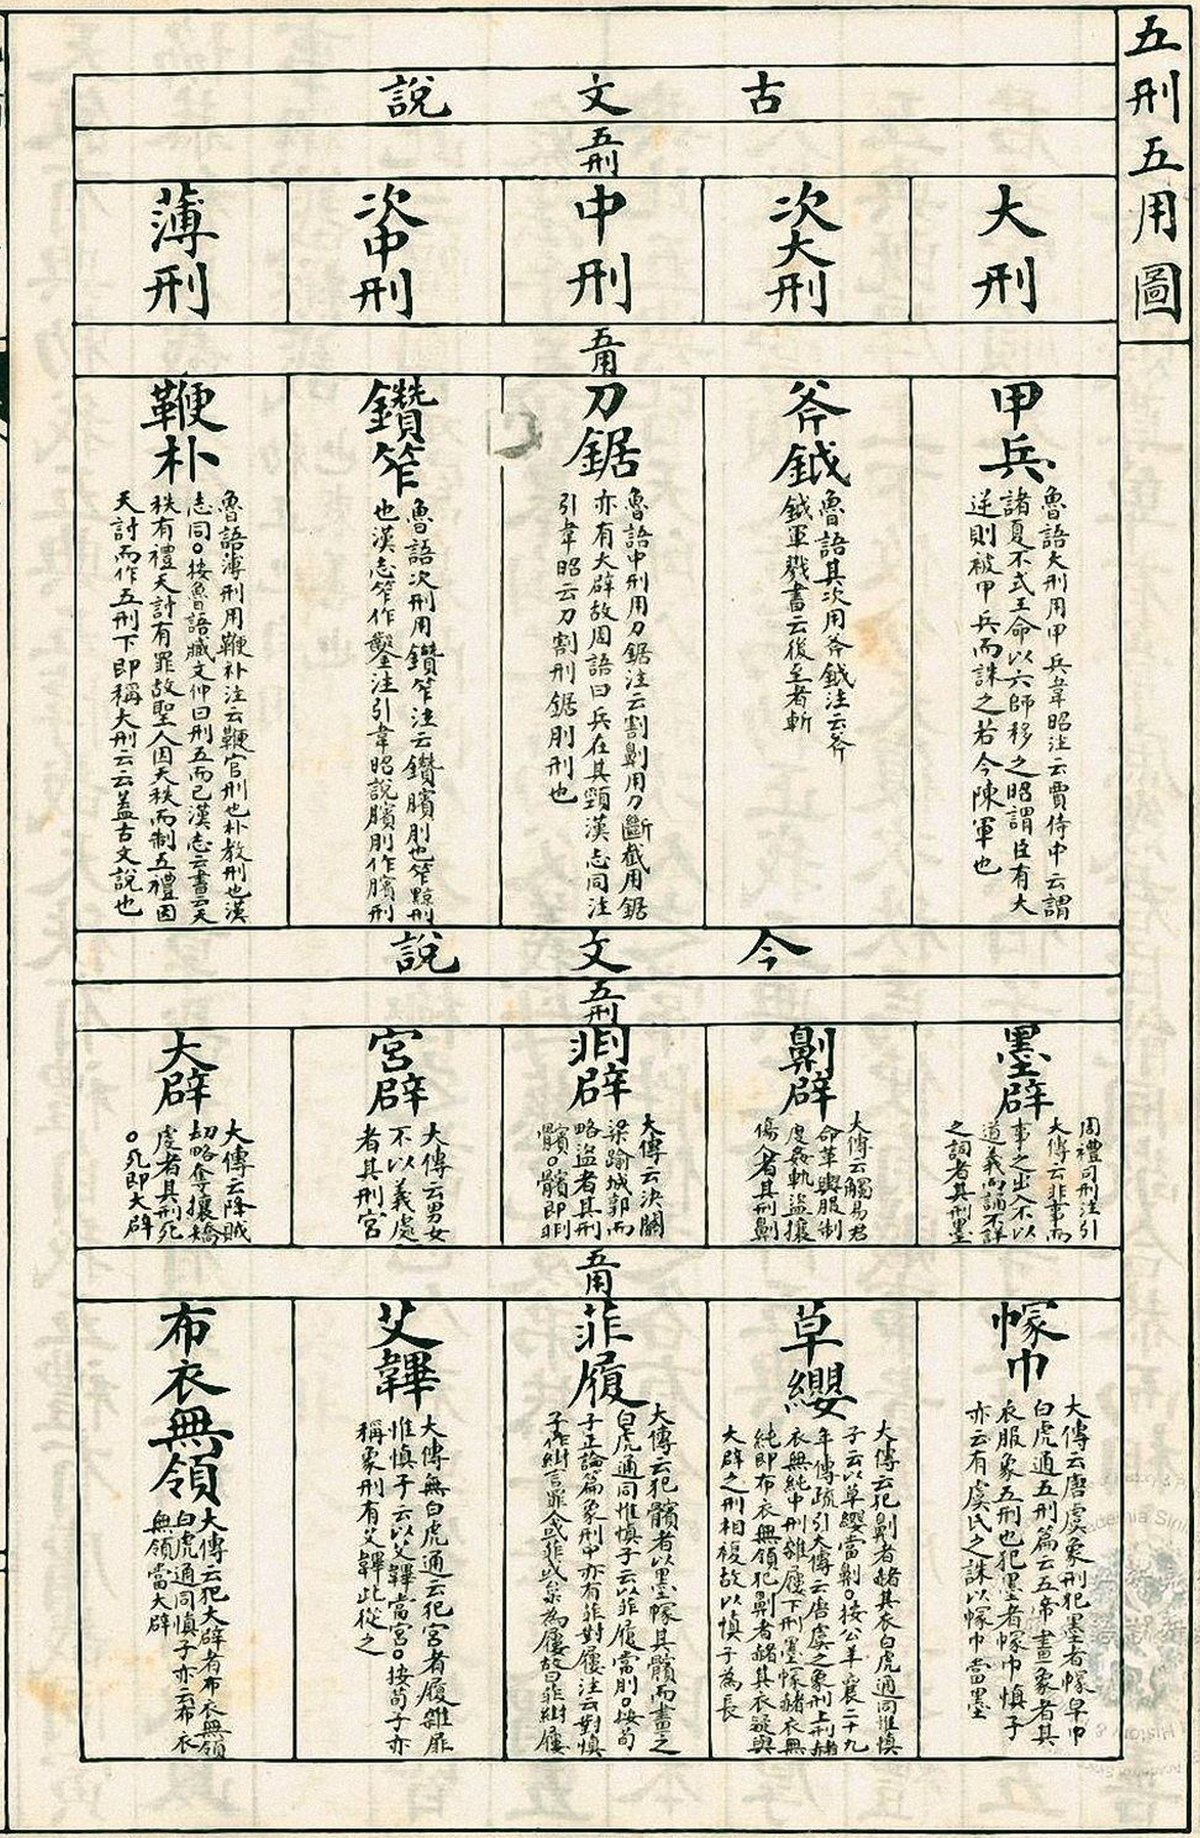 五刑五用圖
古文說
五刑
大刑
次大刑
中刑
次中刑
薄刑
五用
甲兵
魯語大刑用甲兵韋昭注云賈侍中云謂
諸夏不式王命以六師移之昭謂臣有大
逆則被甲兵而誅之若今陳軍也
斧鉞
魯語其次用斧鉞注云斧
鉞軍戮書云後至者斬
刀鋸
魯語中刑用刀鋸注云割劓用刀斷截用鋸
亦有大辟故周語曰兵在其頸漢志同注
引韋昭云刀割刑鋸刖刑也
鑽笮
魯語次刑用鑽笮注云鑽臏刑也笮黥刑
也漢志笮作鑿注引韋昭說臏刑作髕刑
鞭朴
魯語薄刑用鞭朴注云鞭官刑也朴教刑也漢
志同○按魯語臧文仲曰刑五而已漢志云書云天
秩有禮天討有罪故聖人因天秩而制五禮因
天討而作五刑下即稱大刑云云蓋古文說也
今文說
五刑
墨辟
周禮司刑注引
大傳云非事而
事之出入不以
道義而誦不詳
之詞者其刑墨
劓辟
大傳云觸易君
命革輿服制
度姦軌盜攘
傷人者其刑劓
剕辟
大傳云決關
梁踰城郭而
略盜者其刑
髕○髕即剕
宮辟
大傳云男女
不以義處
者其刑宮
大辟
大傳云降賊
劫略奪攘撟
虔者其刑死
○死即大辟
五用
幪巾
大傳云唐虞象刑犯墨者幪皁巾
白虎通五刑篇云五帝畫象者其
衣服象五刑也犯墨者幪巾慎子
亦云有虞氏之誅以幪巾當墨
草纓
大傳云犯劓者赭其衣白虎通同惟慎
子云以草纓當劓○按公羊襄二十九
年傳疏引大傳云唐虞之象刑上刑赭
衣無純中刑雜屨下刑墨幪赭衣無
純即布衣無領犯劓者赭其衣疑與
大辟之刑相複故以慎子為長
菲履
大傳云犯髕者以墨幪其髕而畫之
白虎通同惟慎子云以菲履當刖○按荀
子正論篇象刑中亦有菲對屨注云對慎
子作紨言罪人或菲或枲為屨故曰菲紨屨
艾韠
大傳無白虎通云犯宮者履雜扉
惟慎子云以艾韠當宮○按荀子亦
稱象刑有艾韠此從之
布衣無領
大傳云犯大辟者布衣無領
白虎通同慎子亦云布衣
無領當大辟